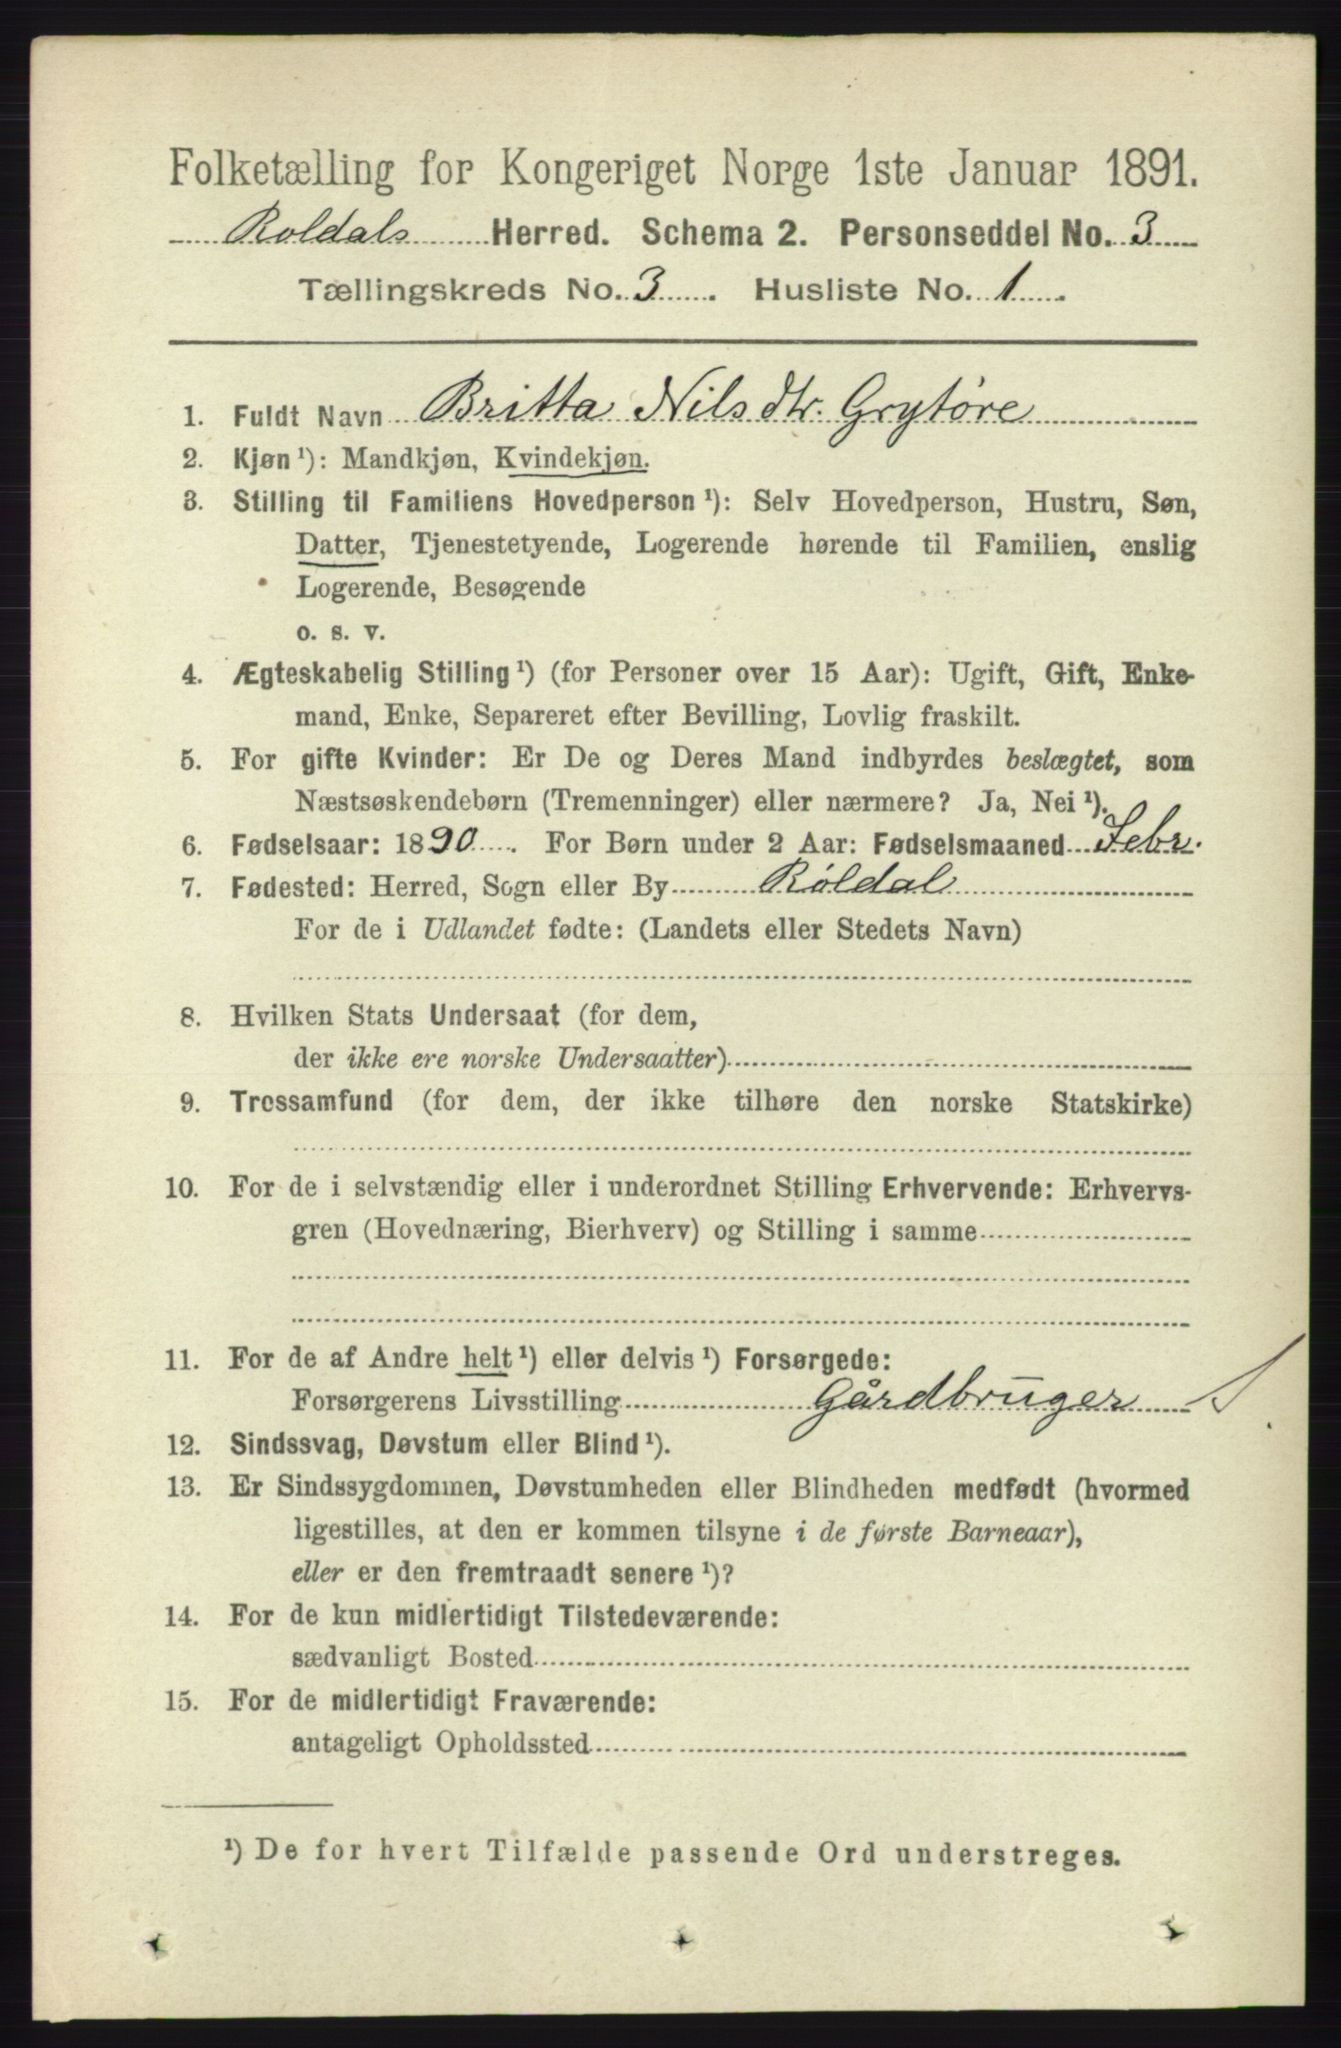 Folketælling for Kongeriget Norge 1ste Januar 1891.
Roldals Herred. Schema 2. Personseddel No. 3
Tællingskreds No. 3. Husliste No. 1.
1. Fuldt Navn Britta Nilsdtr. Grytøre
2. Kjøn ¹): Mandkjøn, Kvindekjøn.
3. Stilling til Familiens Hovedperson ¹): Selv Hovedperson, Hustru, Søn,
Datter, Tjenestetyende, Logerende hørende til Familien, enslig
Logerende, Besøgende
o. s. v.
4. Ægteskabelig Stilling ¹) (for Personer over 15 Aar): Ugift, Gift, Enke-
mand, Enke, Separeret efter Bevilling, Lovlig fraskilt.
5. For gifte Kvinder: Er De og Deres Mand indbyrdes beslægtet, som
Næstsøskendebørn (Tremenninger) eller nærmere? Ja, Nei ¹).
6. Fødselsaar: 1890. For Børn under 2 Aar: Fødselsmaaned Febr.
7. Fødested: Herred, Sogn eller By Røldal
For de i Udlandet fødte: (Landets eller Stedets Navn)
8. Hvilken Stats Undersaat (for dem,
der ikke ere norske Undersaatter)
9. Trossamfund (for dem, der ikke tilhøre den norske Statskirke)
10. For de i selvstændig eller i underordnet Stilling Erhvervende: Erhvervs-
gren (Hovednæring, Bierhverv) og Stilling i samme
11. For de af Andre helt ¹) eller delvis ¹) Forsørgede:
Forsørgerens Livsstilling Gårdbruger S
12. Sindssvag, Døvstum eller Blind ¹).
13. Er Sindssygdommen, Døvstumheden eller Blindheden medfødt (hvormed
ligestilles, at den er kommen tilsyne i de første Barneaar),
eller er den fremtraadt senere ¹)?
14. For de kun midlertidigt Tilstedeværende:
sædvanligt Bosted
15. For de midlertidigt Fraværende:
antageligt Opholdssted
¹) De for hvert Tilfælde passende Ord understreges.